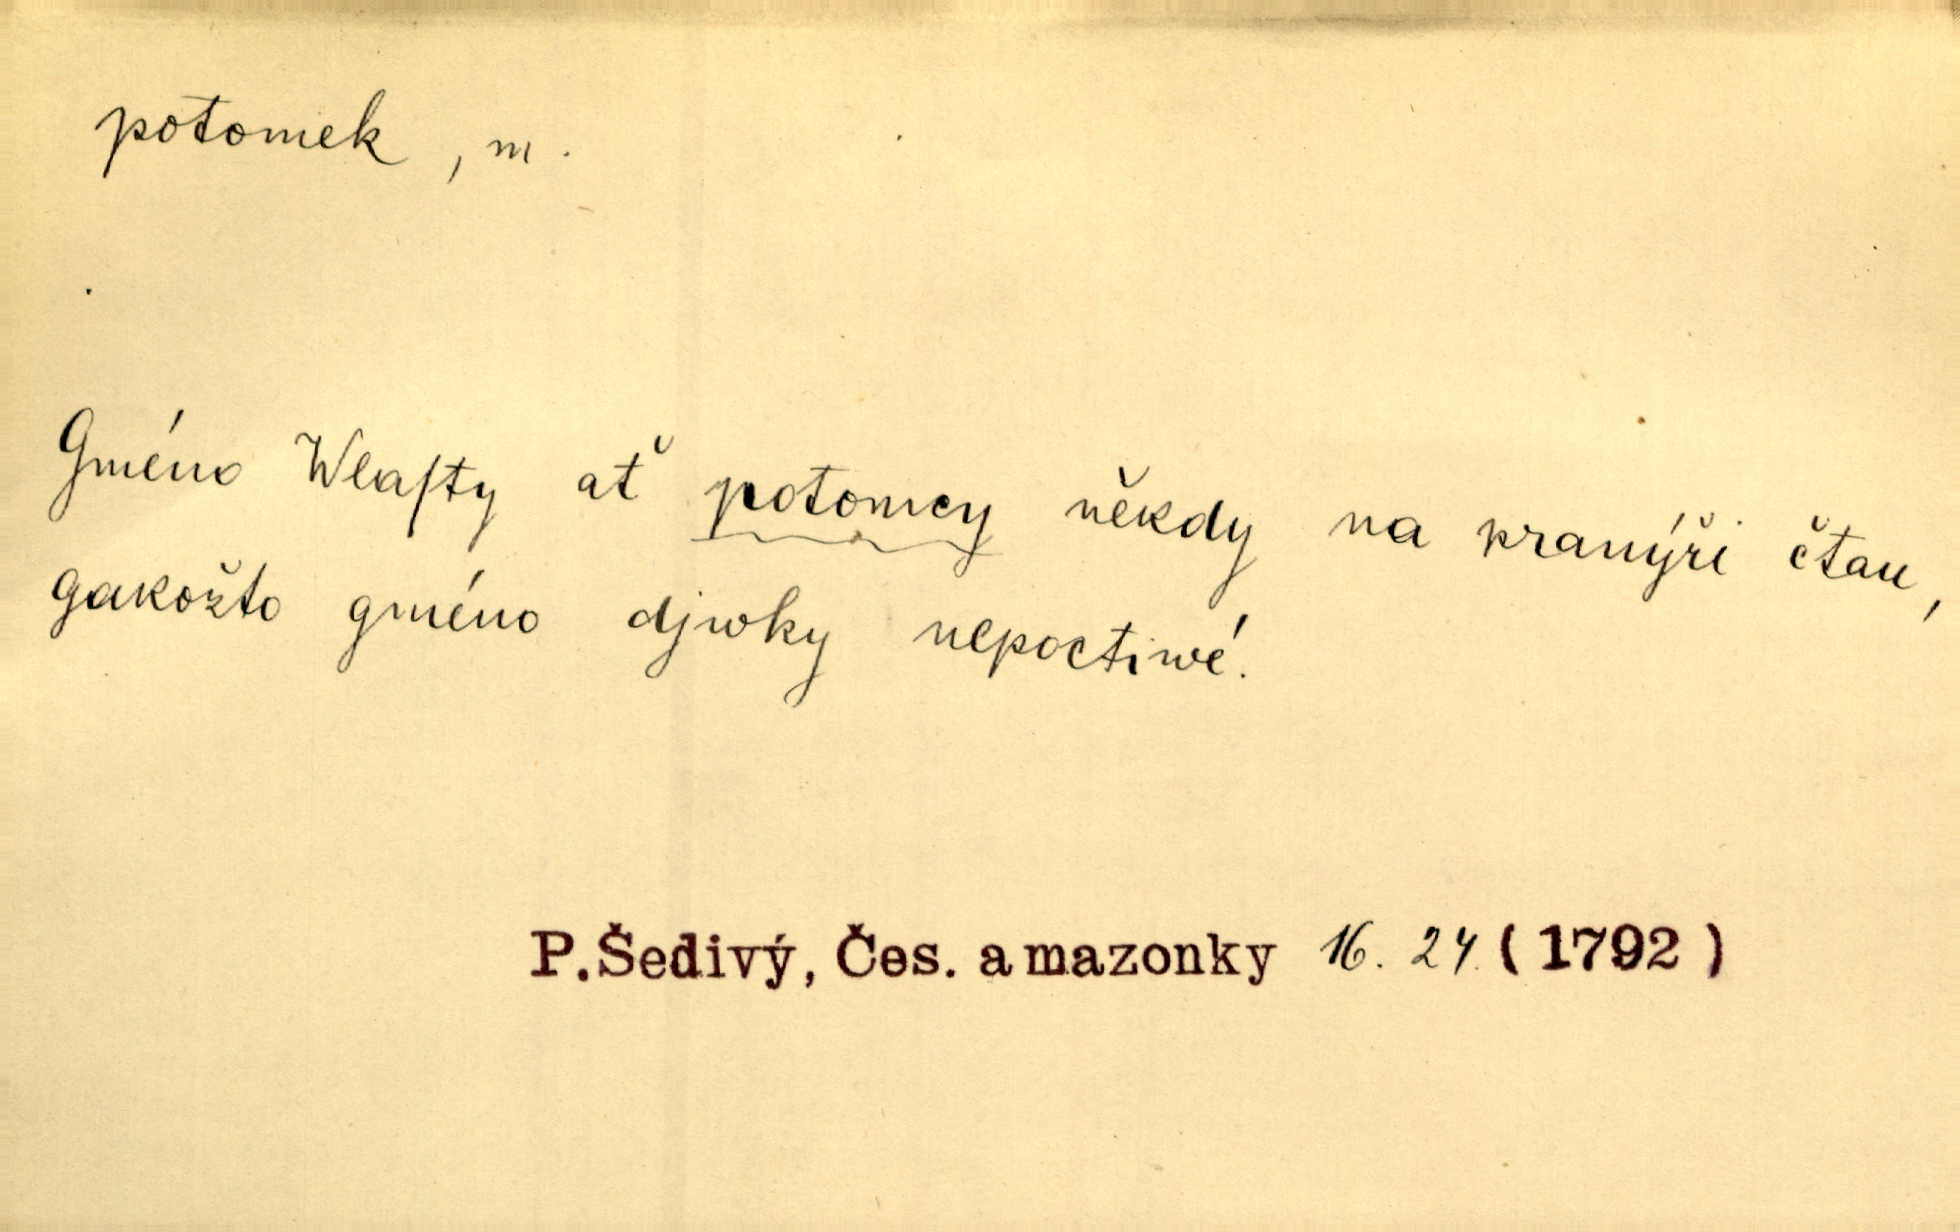 potomek, m.
Gméno Wlaſty ať potomcy někdy na pranýři čtau,
gakožto gméno djwky nepoctiwé.
P.Šedivý, Čes. amazonky 16. 24. (1792)